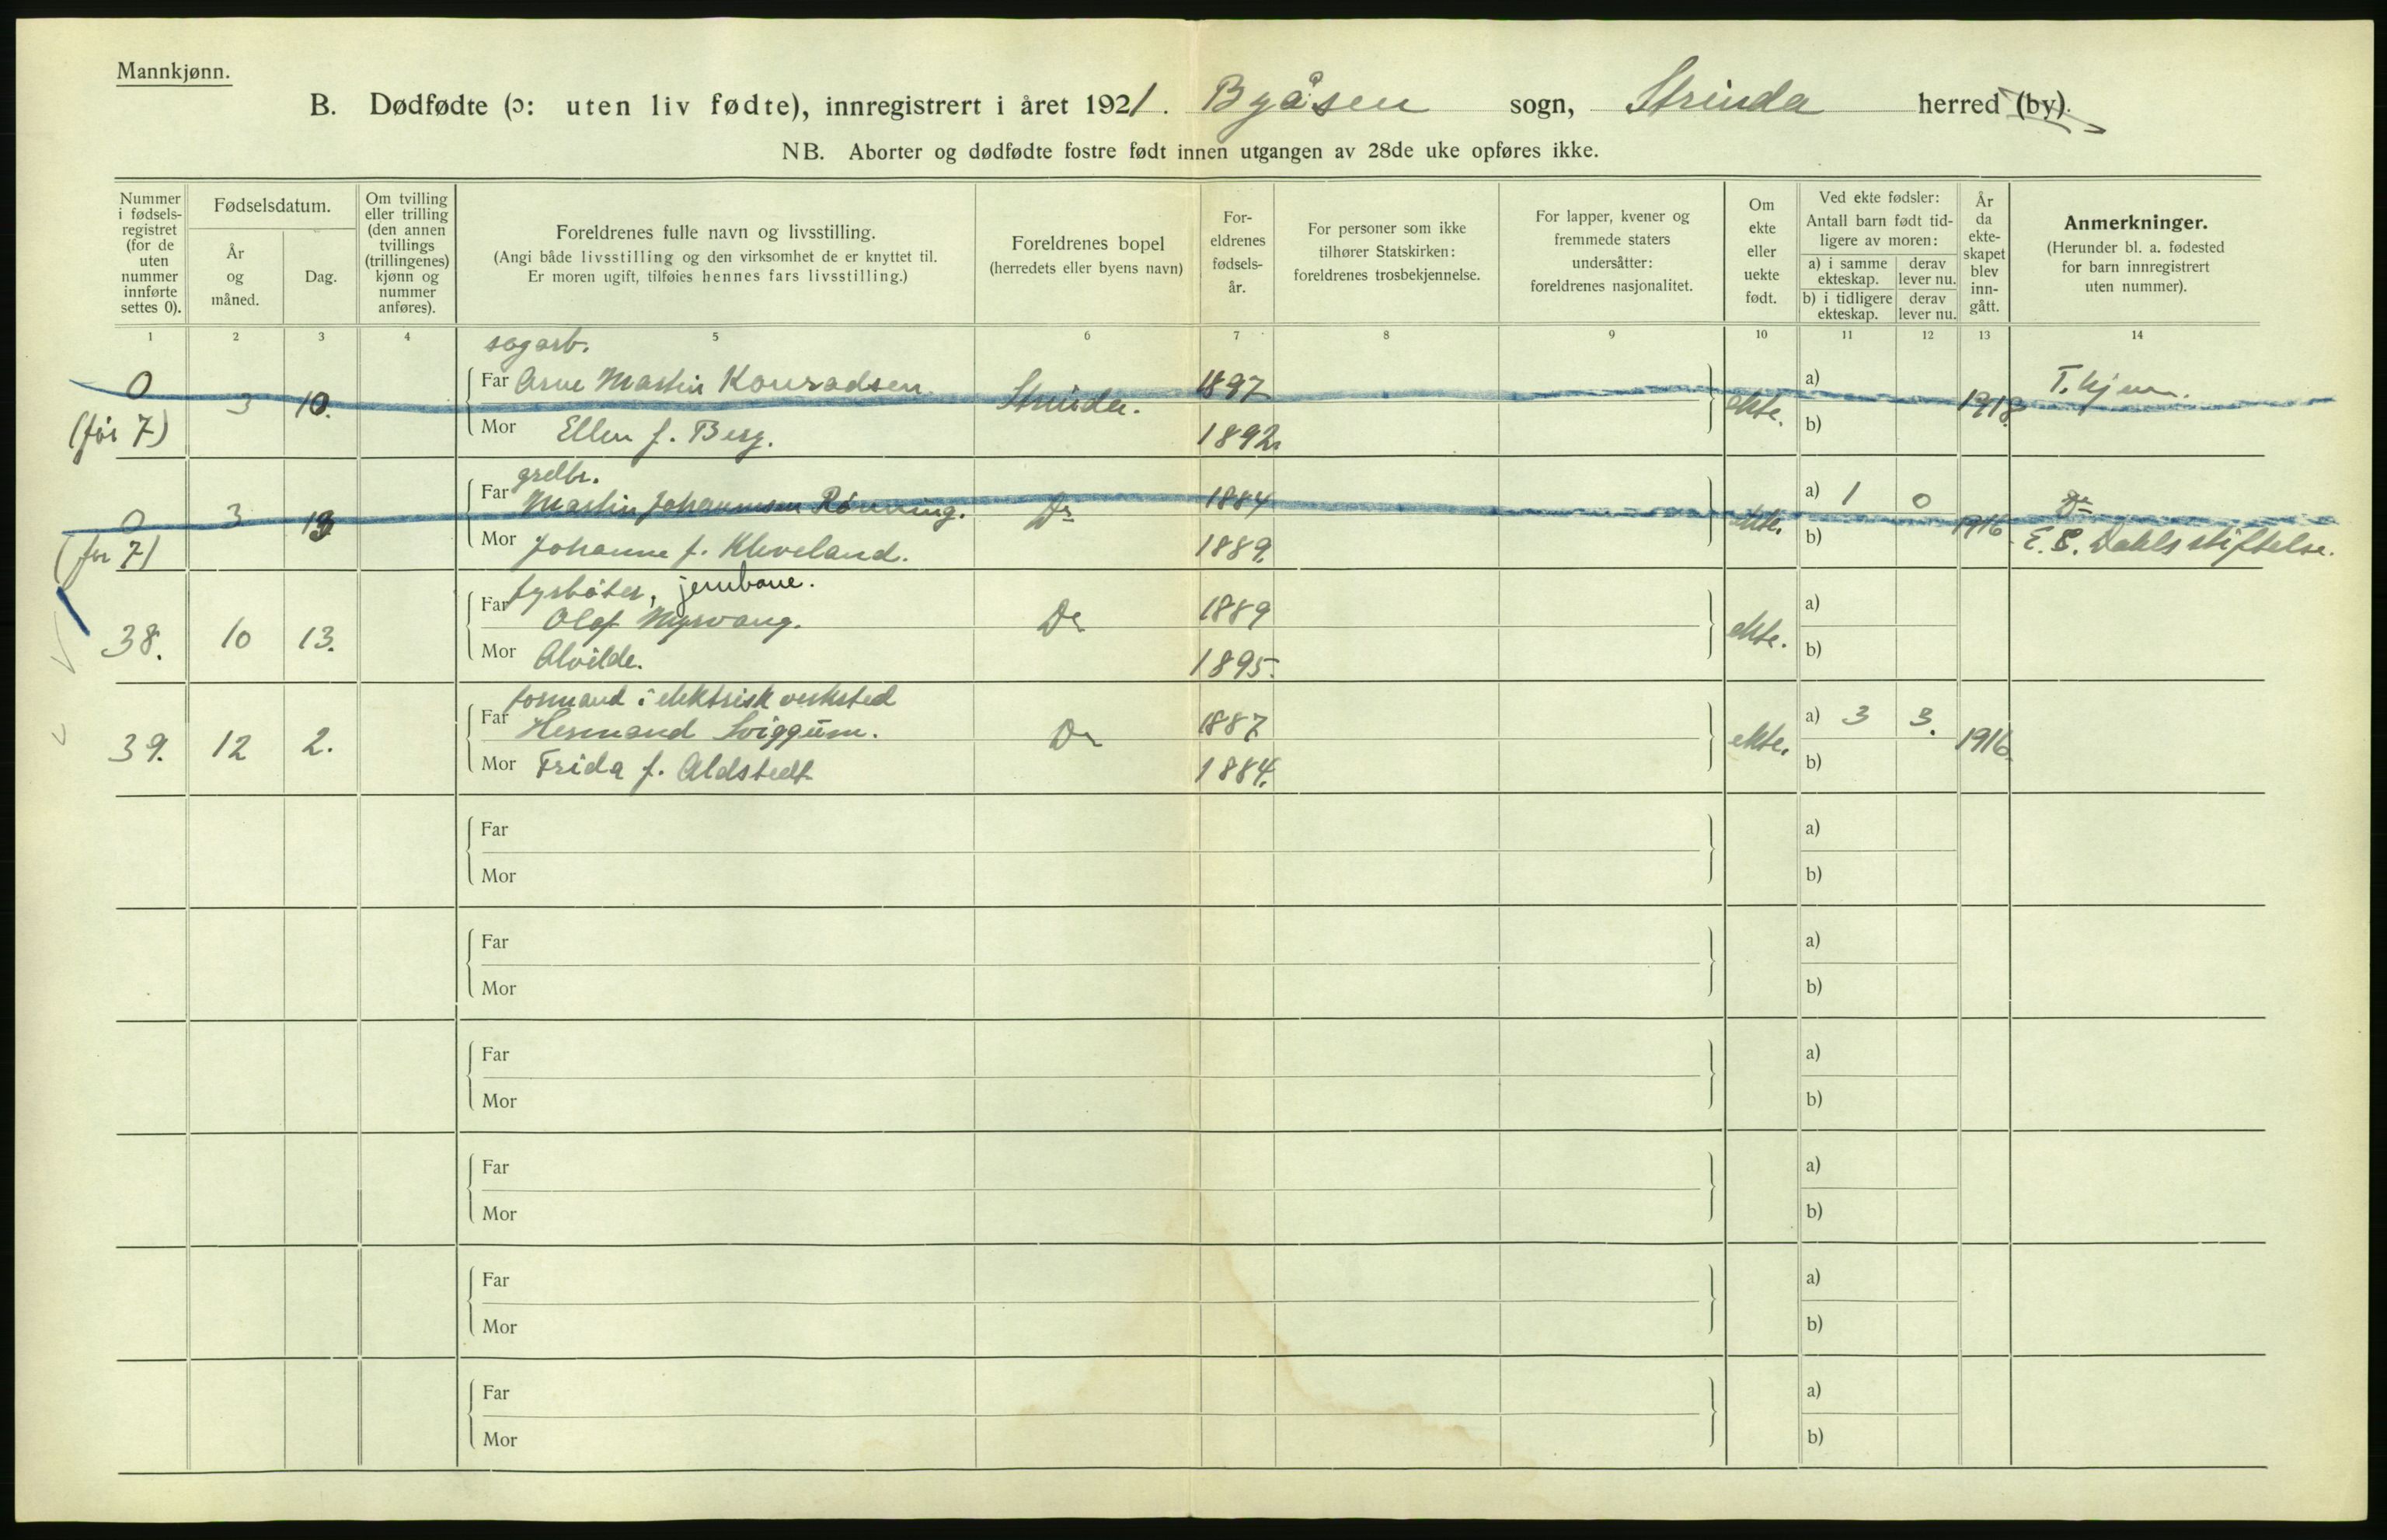 Mannkjønn.
B. Dødfødte (ɔ: uten liv fødte), innregistrert i året 1921. Byåsen sogn, Strinda herred (by).
NB. Aborter og dødfødte fostre født innen utgangen av 28de uke opføres ikke.
Nummer i fødsels-registret (for de uten nummer innførte settes 0).
Fødselsdatum.
År og måned.
Dag.
Om tvilling eller trilling (den annen tvillings (trillingenes) kjønn og nummer anføres).
Foreldrenes fulle navn og livsstilling.
(Angi både livsstilling og den virksomhet de er knyttet til.
Er moren ugift, tilføies hennes fars livsstilling.)
Foreldrenes bopel
(herredets eller byens navn)
For-eldrenes fødsels-år.
For personer som ikke tilhører Statskirken: foreldrenes trosbekjennelse.
For lapper, kvener og fremmede staters undersåtter: foreldrenes nasjonalitet.
Om ekte eller uekte født.
Ved ekte fødsler:
Antall barn født tid-ligere av moren:
a) i samme ekteskap. derav lever nu.
b) i tidligere ekteskap. derav lever nu.
År da ekte-skapet blev inn-gått.
Anmerkninger.
(Herunder bl. a. fødested for barn innregistrert uten nummer).
1 2 3 4 5 6 7 8 9 10 11 12 13 14
sagarb.
0 3 10. Far Arne Martin Konradsen Strinda. 1897 ekte. a) 1918. T.hjem.
(før 7) Mor Ellen f. Berg. 1892. b)
grdbr.
0 3 13 Far Martin Johannesen Rønning. Do 1884 ekte. a) 1 0 1916 Do
(før 7) Mor Johanne f. Kleveland. 1889. b) E. C. Dahls stiftelse.
fyrbøter, jernbane.
38. 10 13. Far Olaf Myrvang. Do 1889 ekte. a)
Mor Alvilde. 1895. b)
formand i elektrisk verksted
39. 12 2. Far Hermand Sviggum. Do 1887 ekte. a) 3 3. 1916.
Mor Frida f. Aldstedt 1884. b)
Far a)
Mor b)
Far a)
Mor b)
Far a)
Mor b)
Far a)
Mor b)
Far a)
Mor b)
Far a)
Mor b)